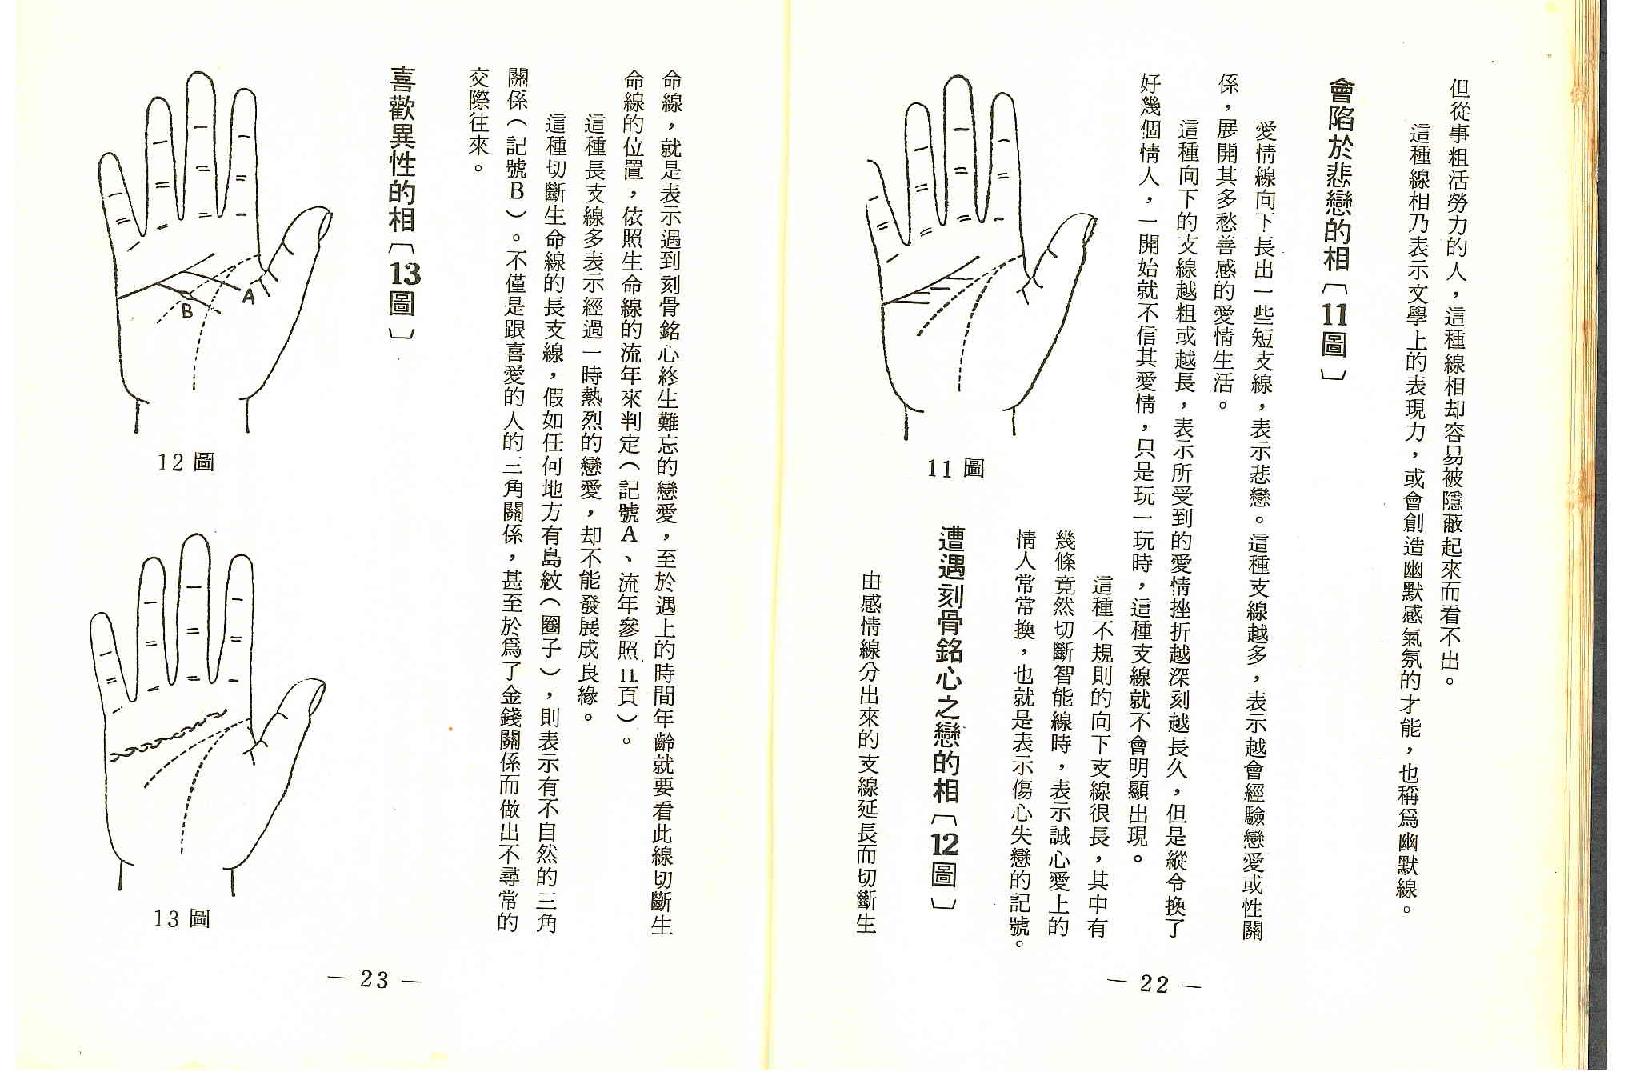 但從事粗活勞力的人，這種線相却容易被隱蔽起來而看不出。
這種線相乃表示文學上的表現力，或會創造幽默感氣氛的才能，也稱爲幽默線。
會陷於悲戀的相〔11圖〕
愛情線向下長出一些短支線，表示悲戀。這種支線越多，表示越會經驗戀愛或性關
係，展開其多愁善感的愛情生活。
這種向下的支線越粗或越長，表示所受到的愛情挫折越深刻越長久，但是縱令換了
好幾個情人，一開始就不信其愛情，只是玩一玩時，這種支線就不會明顯出現。
這種不規則的向下支線很長，其中有
幾條竟然切斷智能線時，表示誠心愛上的
情人常常換，也就是表示傷心失戀的記號。
遭遇刻骨銘心之戀的相〔12圖〕
由感情線分出來的支線延長而切斷生
11圖
— 22 —
命線，就是表示遇到刻骨銘心終生難忘的戀愛，至於遇上的時間年齡就要看此線切斷生
命線的位置，依照生命線的流年來判定（記號A、流年參照11頁）。
這種長支線多表示經過一時熱烈的戀愛，却不能發展成良緣。
這種切斷生命線的長支線，假如任何地方有島紋（圈子），則表示有不自然的三角
關係（記號B）。不僅是跟喜愛的人的三角關係，甚至於爲了金錢關係而做出不尋常的
交際往來。
喜歡異性的相〔13圖〕
A
B
12圖
13圖
— 23 —